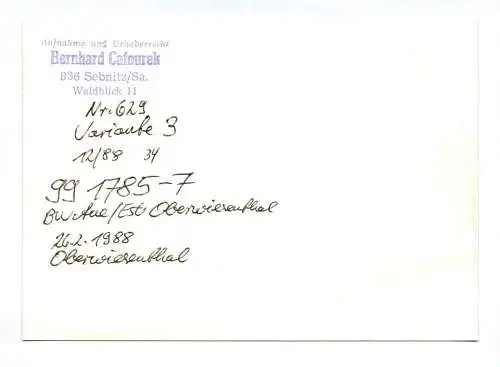 Aufnahme und Urheberrecht
Bernhard Cafourek
836 Sebnitz/Sa.
Waldblick 11
Nr. 629
Variante 3
12/88 34
99 1785-7
BW. Aue/Est Oberwiesenthal
26.2.1988
Oberwiesenthal